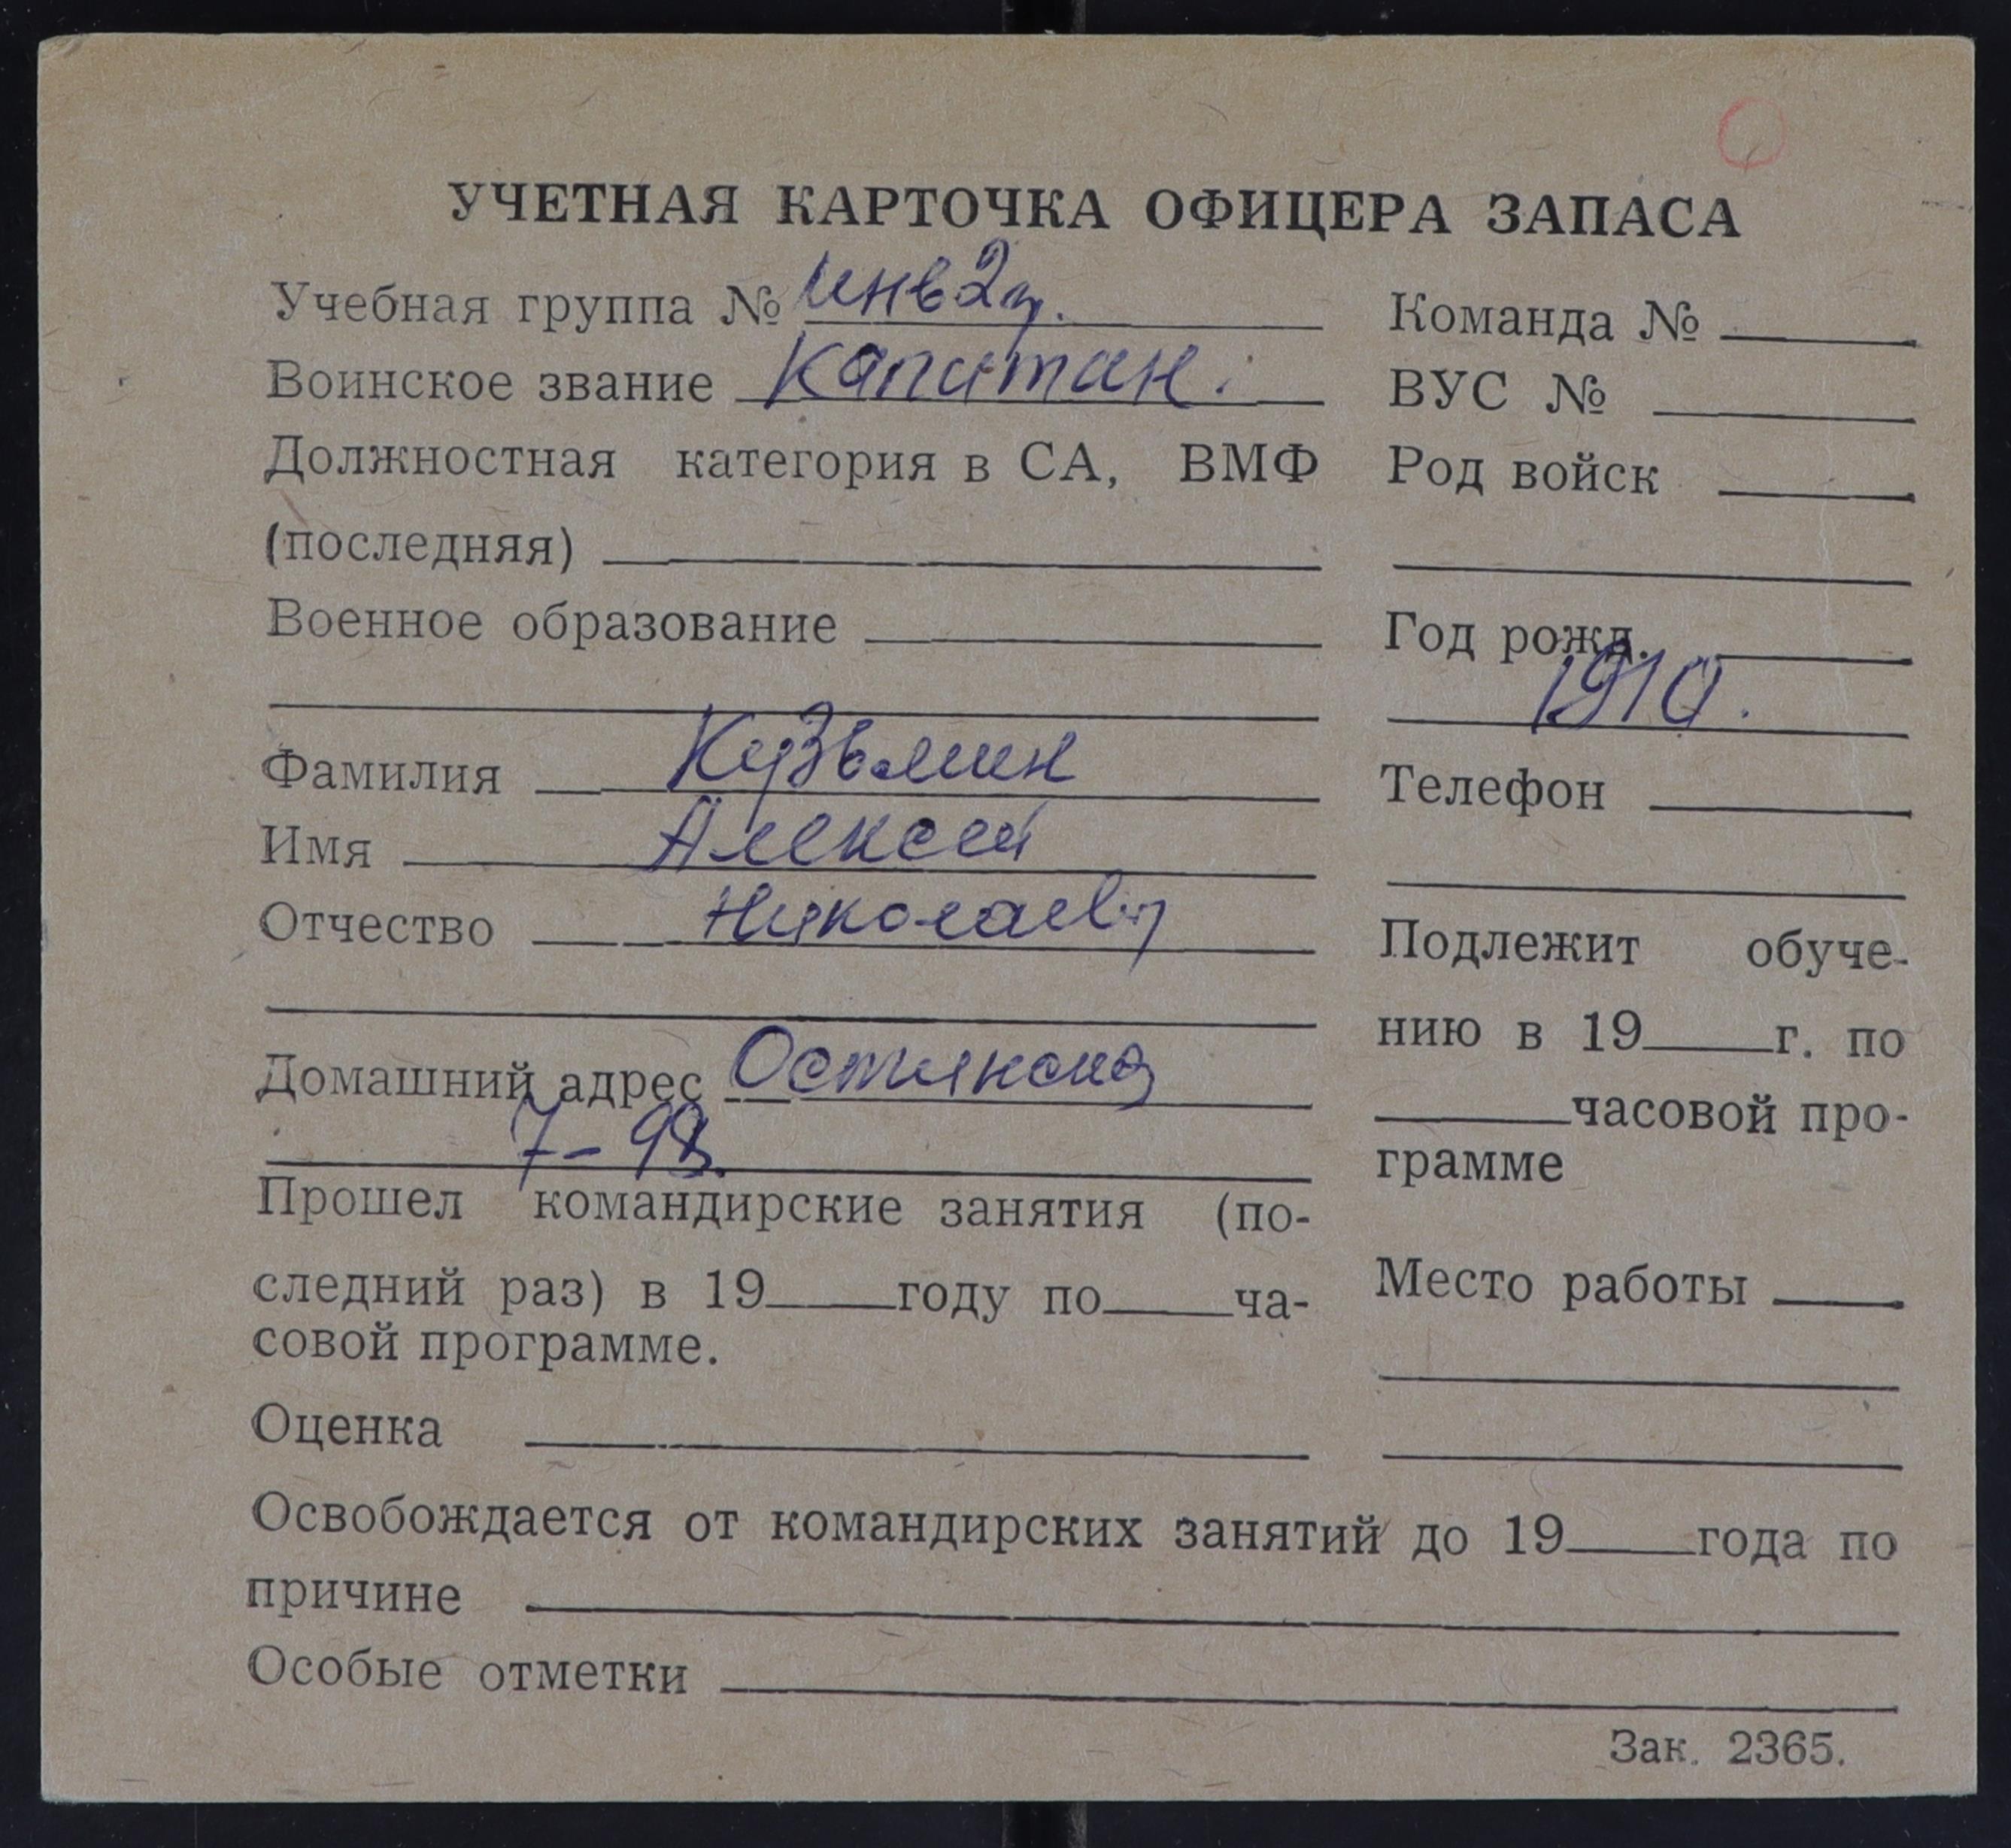 УЧЕТНАЯ КАРТОЧКА ОФИЦЕРА ЗАПАСА
Учебная группа № инв 2 гр.
Воинское звание Капитан.
Должностная категория в СА, ВМФ
(последняя)
Военное образование
Фамилия Кузьмин
Имя Алексей
Отчество Николаевич
Домашний адрес Остужева
7-98.
Прошел командирские занятия (по-
следний раз) в 19 году по ча-
совой программе.
Оценка
Команда №
ВУС №
Род войск
Год рожд.
1910.
Телефон
Подлежит обуче-
нию в 19 г. по
часовой про-
грамме
Место работы
Освобождается от командирских занятий до 19 года по
причине
Особые отметки
Зак. 2365.